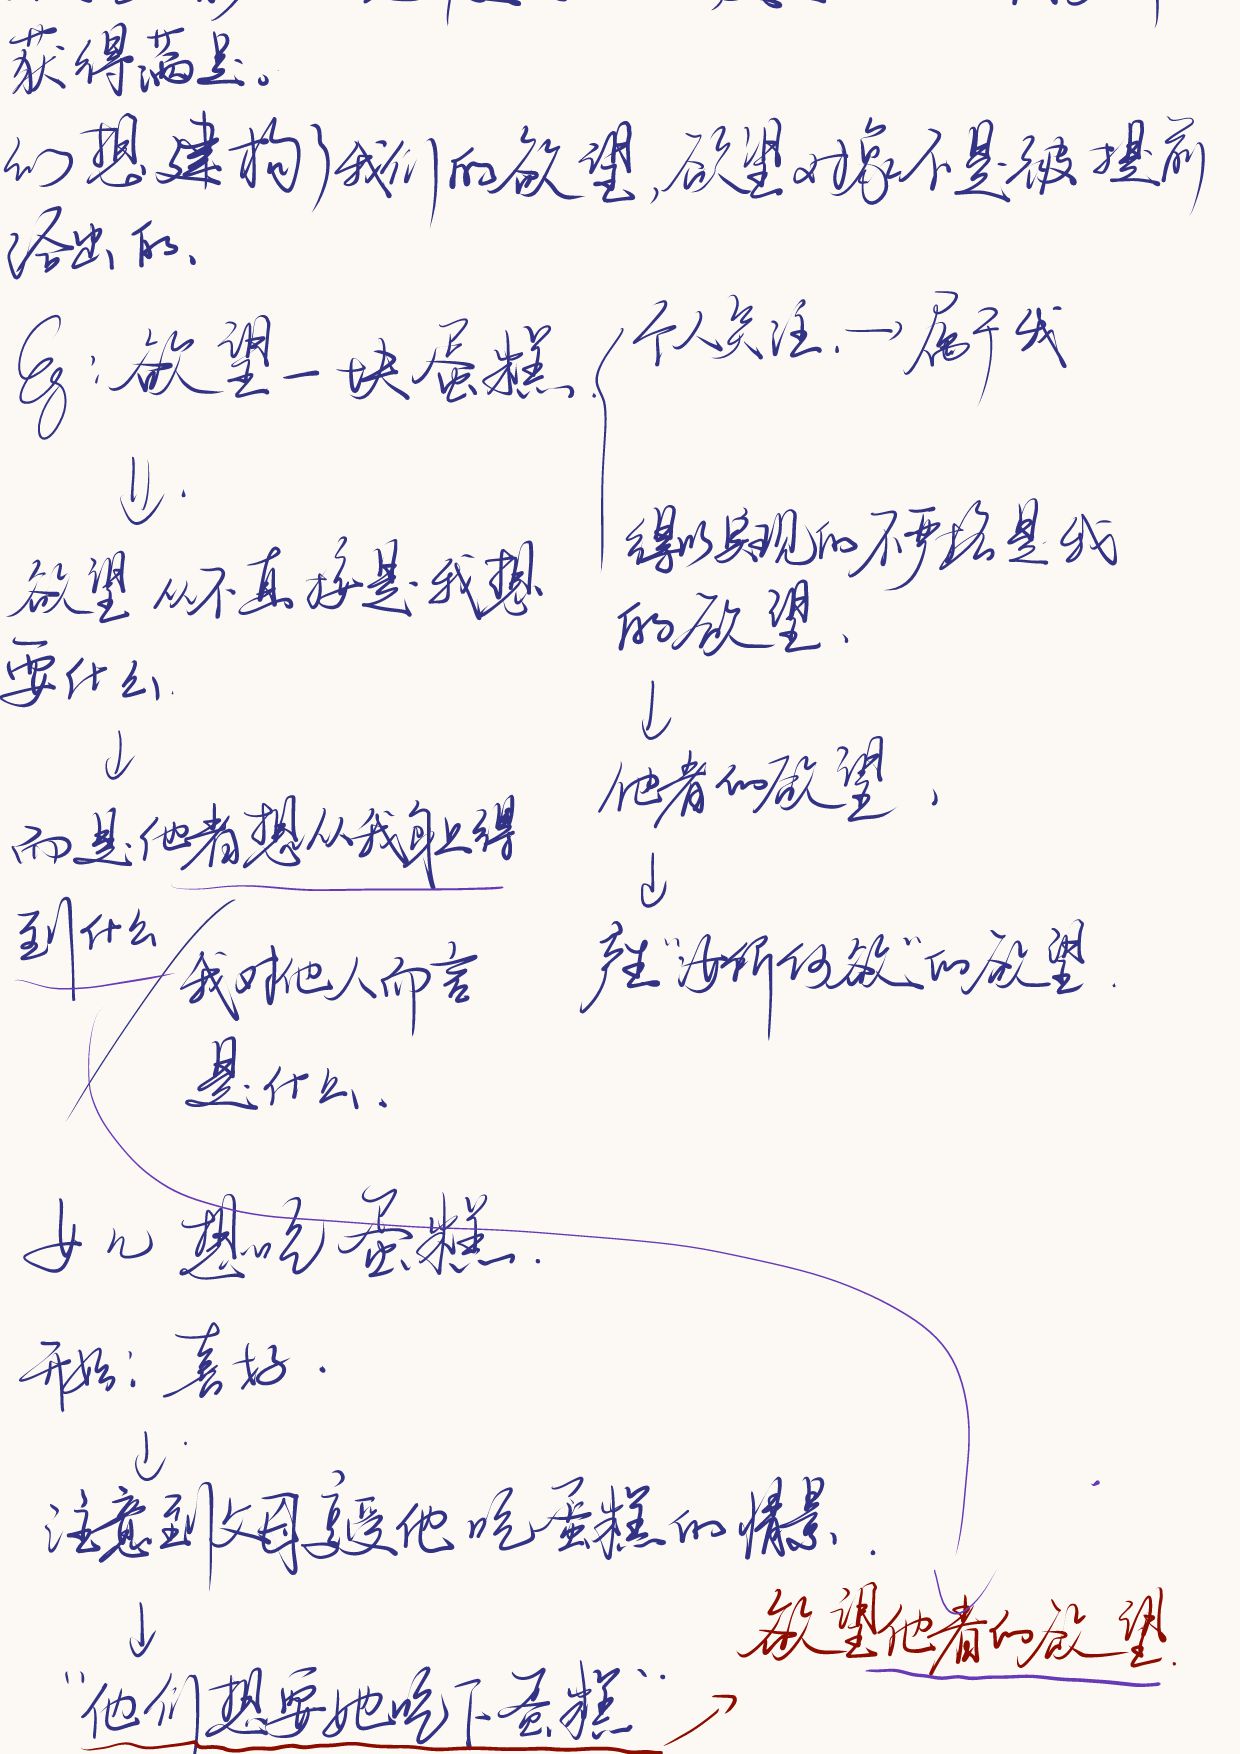 获得满足。
幻想建构了我们的欲望,欲望对象不是被提前
给出的、
Eg:欲望一块蛋糕.
个人关注.→属于我
得以实现的不严格是我
的欲望、
↓
他者的欲望、
↓
产生“汝所何欲”的欲望.
⇓.
欲望从不直接是我想
要什么.
↓
而是他者想从我身上得
到什么
我对他人而言
是什么.
女儿想吃蛋糕.
开始:喜好.
↓
注意到父母享受他吃蛋糕的情景.
↓
“他们想要她吃下蛋糕”.
→
欲望他者的欲望.